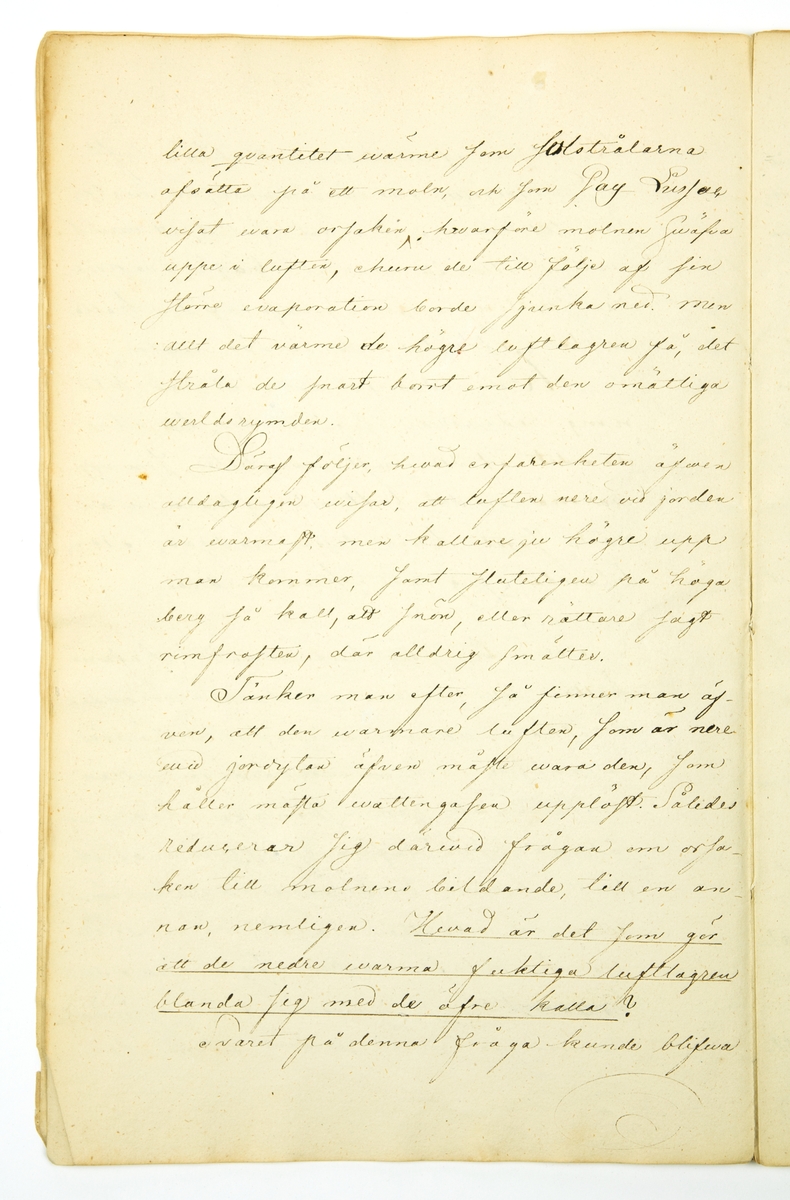 lilla qvantitet wärme som solstrålarna
afsätta på ett moln, och som Gay Lussac
visat wara orsaken, hvarföre molnen swäfva
uppe i luften, ehuru de till följe af sin
större evaporation borde sjunka ned. men
allt det värme de högre luftlagren få, det
stråla de snart bort emot den omätliga
werldsrymden.
Däraf följer, hwad erfarenheten äfwen
alldagligen wisar, att luften nere vid jorden
är warmast, men kallare ju högre upp
man kommer, samt sluteligen på höga
berg så kall, att snön, eller rättare sagt
rimfrosten, där alldrig smälter.
Tänker man efter, så finner man äf-
ven, att den warmare luften, som är nere
wid jordytan äfven måste wara den, som
håller mästa wattengasen upplöst. Således
reducerar sig därwid frågan om orsa-
ken till molnens bildande, till en an-
nan, nemligen. Hwad är det som gör
att de nedre warma fuktiga luftlagren
blanda sig med de öfre kalla?
Svaret på denna fråga kunde blifwa